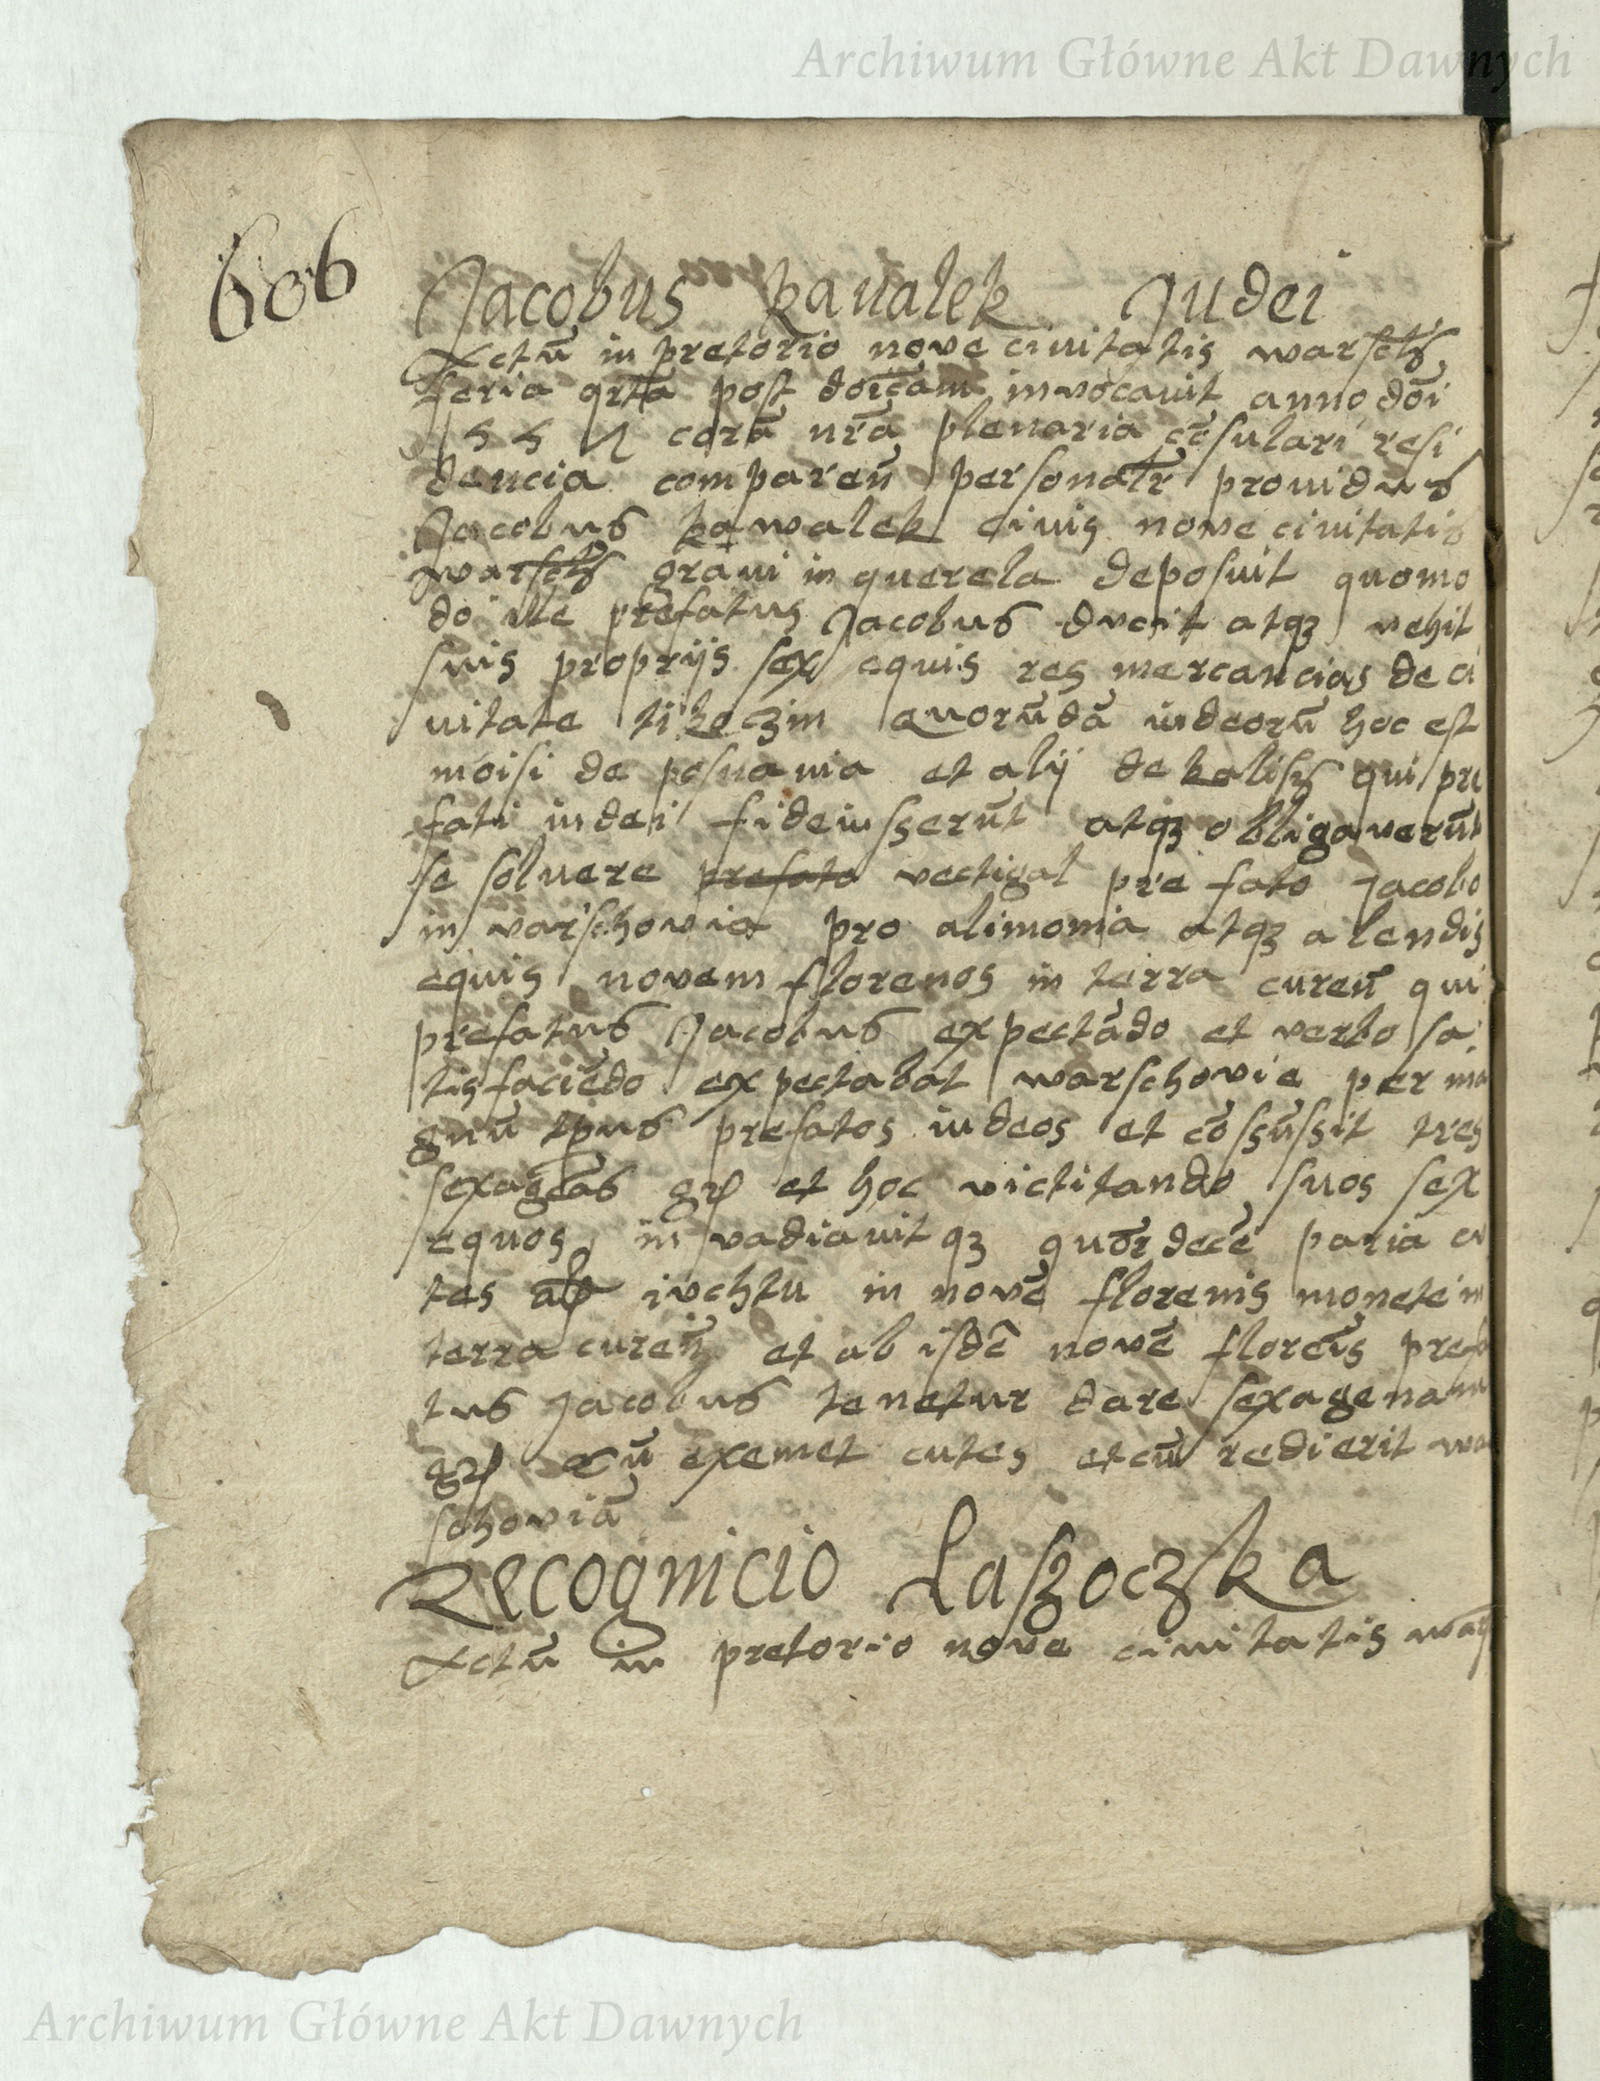 Archiwum Główne Akt Dawnych
606
Jacobus Kaualek Judei
Actū in pretorio nove ciuitatis warsch
feria qrta post doīcam invocauit anno doī
1557 corā nrā plenaria cōsulari resi
dencia comparen̄ personalr̄ prouidus
Jacobus kawalek ciuis nove ciuitatis
warsch graui in querela deposuit quomo
do ille prefatus Jacobus ducit atqȝ vehit
suis proprijs sex equis res mercancias de ci
uitate tikoczin quorūdā iudeorū hoc est
moisi de posnania et alij de kalisch qui pre
fati iudei fideiusserūt atqȝ obligaverūt
se soluere prefato vectigal prefato Jacobo
in varschovia pro alimonia atqȝ alendis
equis novem florenos in terra curen̄ qui
prefatus Jacobus expectādo et verbo sa
tisfaciēdo expectabat warschovie per ma
gnū tpus prefatos iudeos et cōsūssit tres
sexagēas gr et hoc victitando suos sex
equos in vadiauitqȝ quordecē paria cu
tes iuchtu in novē florenis monete in
terra curen̄ et ab isdē novē florēis prefa
tus Jacobus tenetur dare sexagenam
gr cū exemet cutes et cū redierit wa
schoviā
Recognicio Laszoczka
Actū in pretorio nove ciuitatis war
Archiwum Główne Akt Dawnych